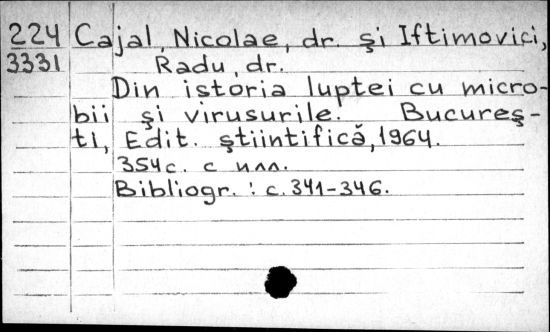 224 Cajal, Nicolae, dr. şi Iftimovici,
3331 Radu, dr.
Din istoria luptei cu micro-
bii şi virusurile. Bucureş-
ti, Edit. ştiintifică, 1964.
354c. с илл.
Bibliogr.: c. 341-346.